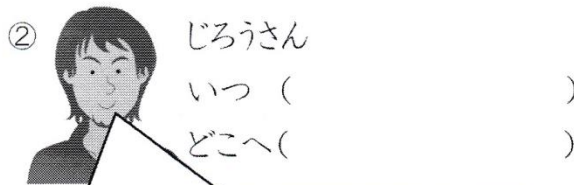 ② じろうさん
いつ（　　　　　　　）
どこへ（　　　　　　　）